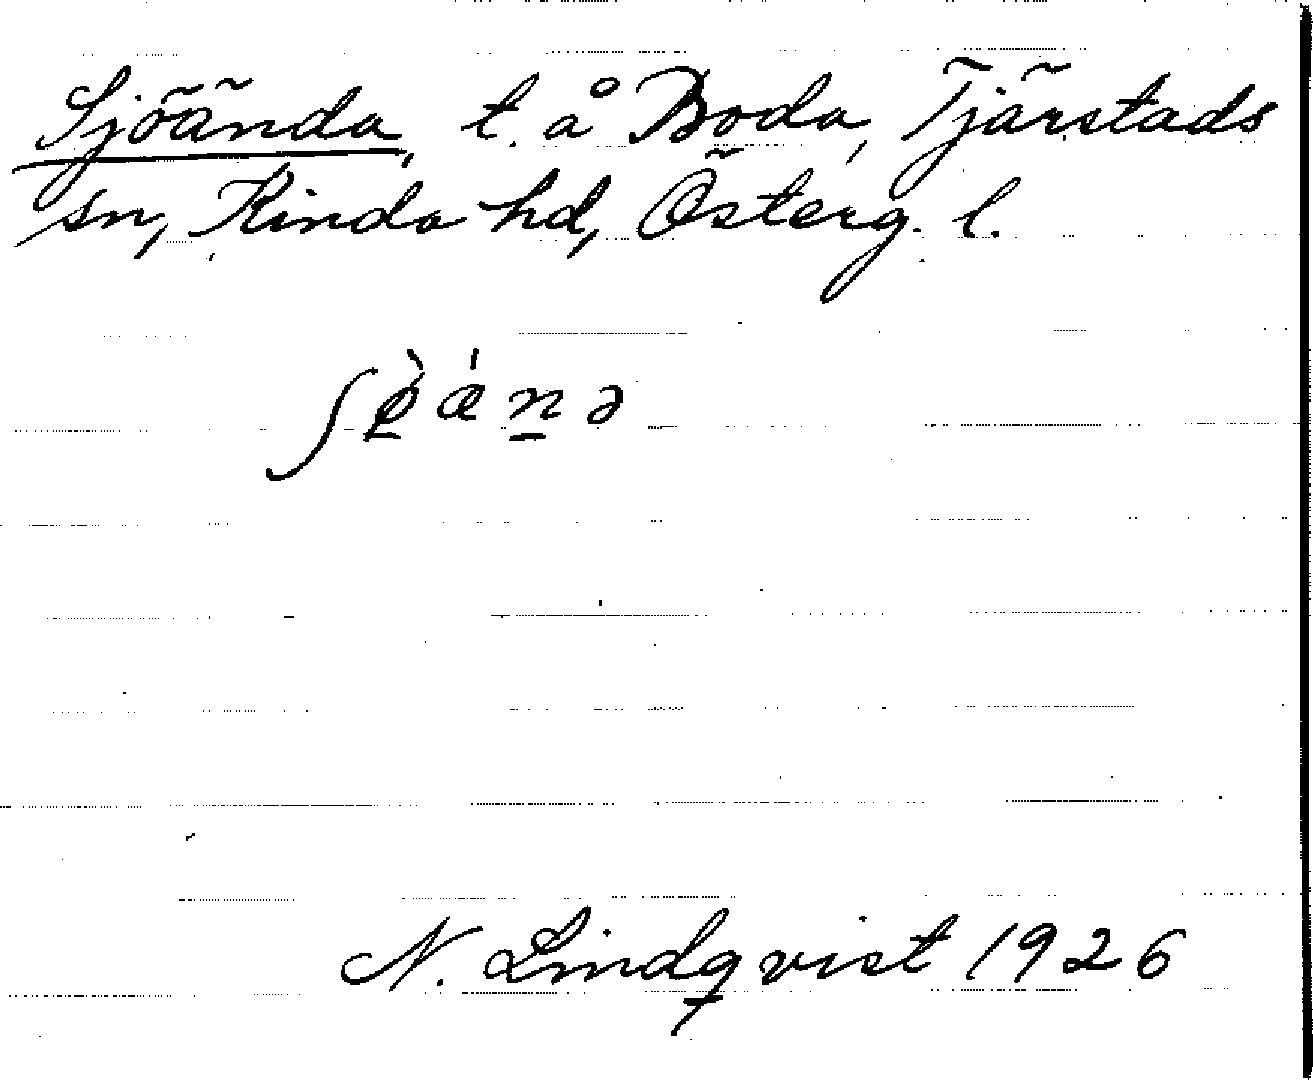 Sjöända, t. å Boda, Tjärstads
sn, Kinda hd, Österg. l.
ʃø̠̀ǽn̠ə
N. Lindqvist 1926